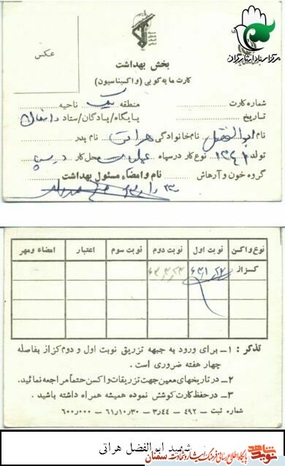 مرکز اسناد ایثارگران
عکس
بخش بهداشت
کارت مایه کوبی (واکسیناسیون)
شماره کارت منطقه یک ناحیه
تاریخ پایگاه/پادگان/ستاد دامغان
نام ابوالفضل نام خانوادگی هراتی نام پدر
تولد ۱۳۴۱ نوع کار در سپاه محل کار
گروه خون و آرهاش نام و امضاء مسئول بهداشت
نوع واکسن نوبت اول نوبت دوم نوبت سوم اعتبار امضاء و مهر
کزاز
تذکر : ۱ــ برای ورود به جبهه تزریق نوبت اول و دوم کزاز بفاصله
چهار هفته ضروری است .
۲ــ در تاریخهای معین جهت تزریقات واکسن حتماً مراجعه نمائید.
۳ــ در حفظ کارت کوشش نموده همیشه همراه داشته باشید .
شماره ثبت ــ ۴۹۲ ــ ۳٫۴۴ ــ ۶۱٫۱۰٫۳۰ ــ ۶۰۰٫۰۰۰
شهید ابوالفضل هراتی